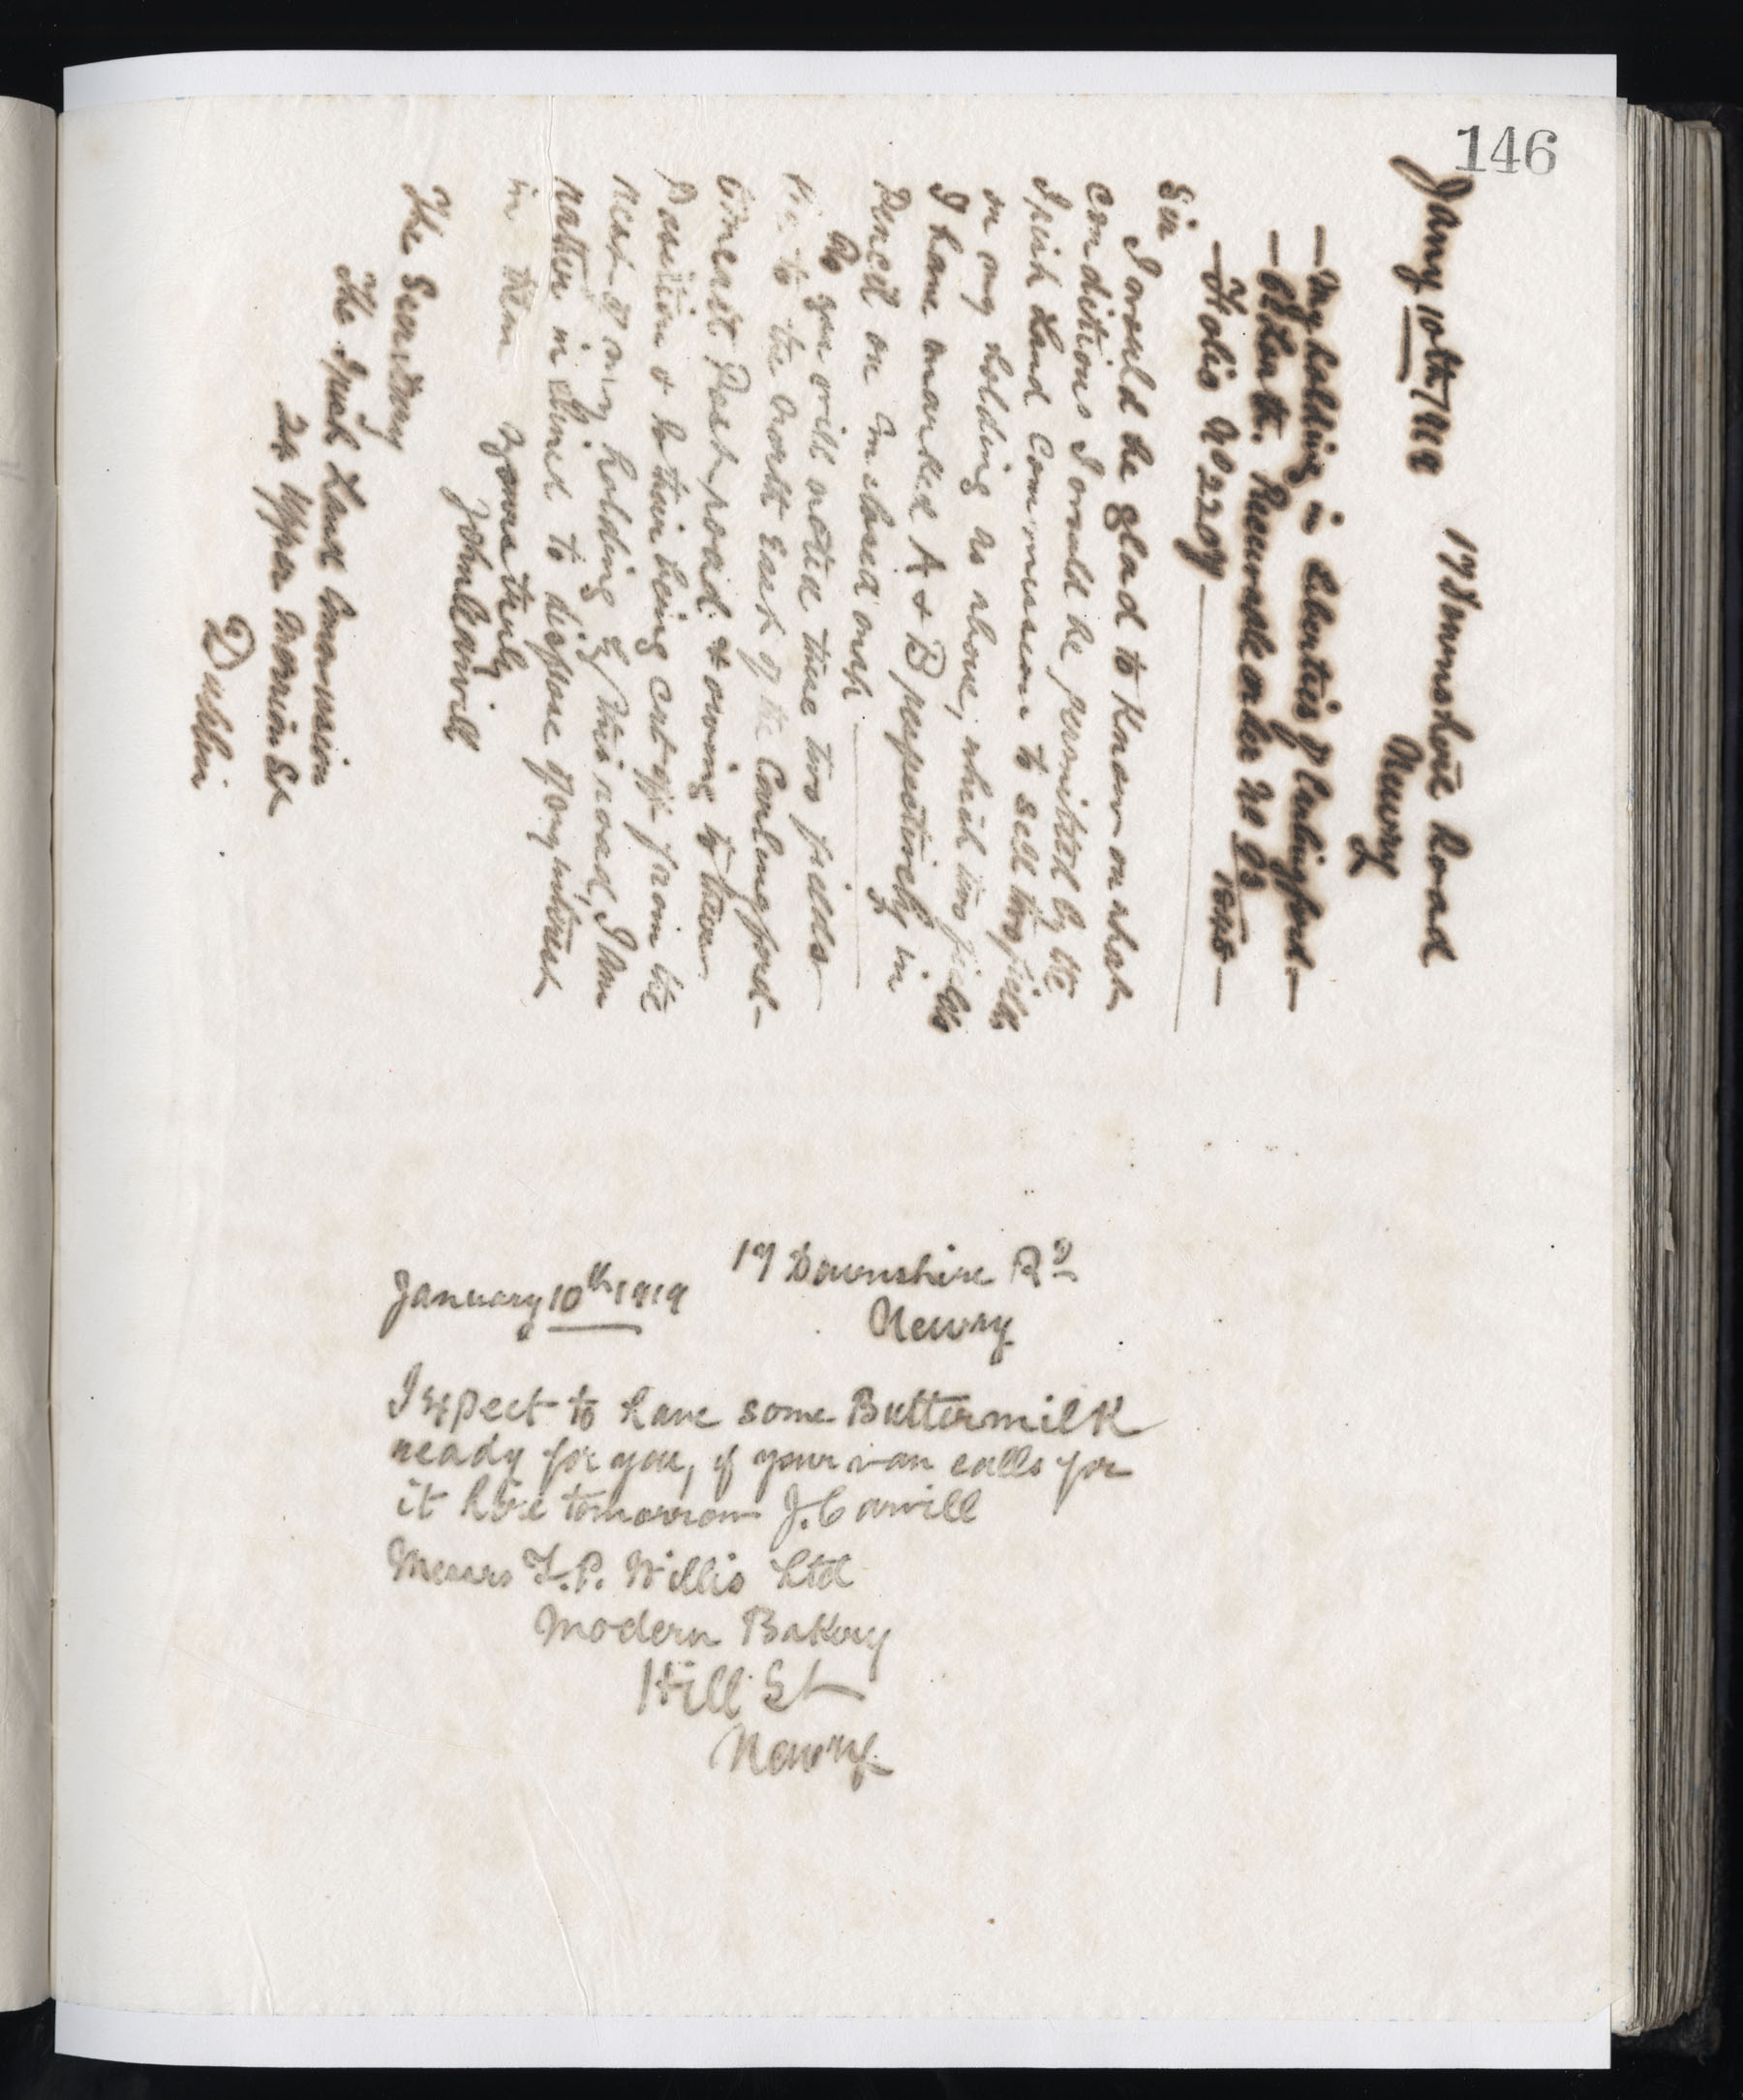 146
17 Downshire Road
Jany 10th/1919
Newry
— My holding in Liberties of Carlingford —
— Co Louth. Record No 93
— Folio No 2207 — 1845 —
Sir
I would be glad to Know on what
conditions I would be permitted by the
Irish Land Commission to sell two fields
on my holding as above, which two fields
I have marked A & B respectively in
Pencil on Enclosed map
As you will notice these two fields
lie to the North East of the Carlingford —
Omeath Post road & owing to their
Position & to their being cut off from the
rest of my holding by this road, I am
rather inclined to dispose of my interest
in them
Yours truly
John Carvill
The Secretary
The Irish Land Commission
24 Upper Merrion St
Dublin
17 Downshire Rd
January 10th 1919
Newry
I expect to have some Buttermilk
ready for you, if your van calls for
it here tomorrow J. Carvill
Messrs F. P. Willis Ltd
Modern Bakery
Hill St
Newry